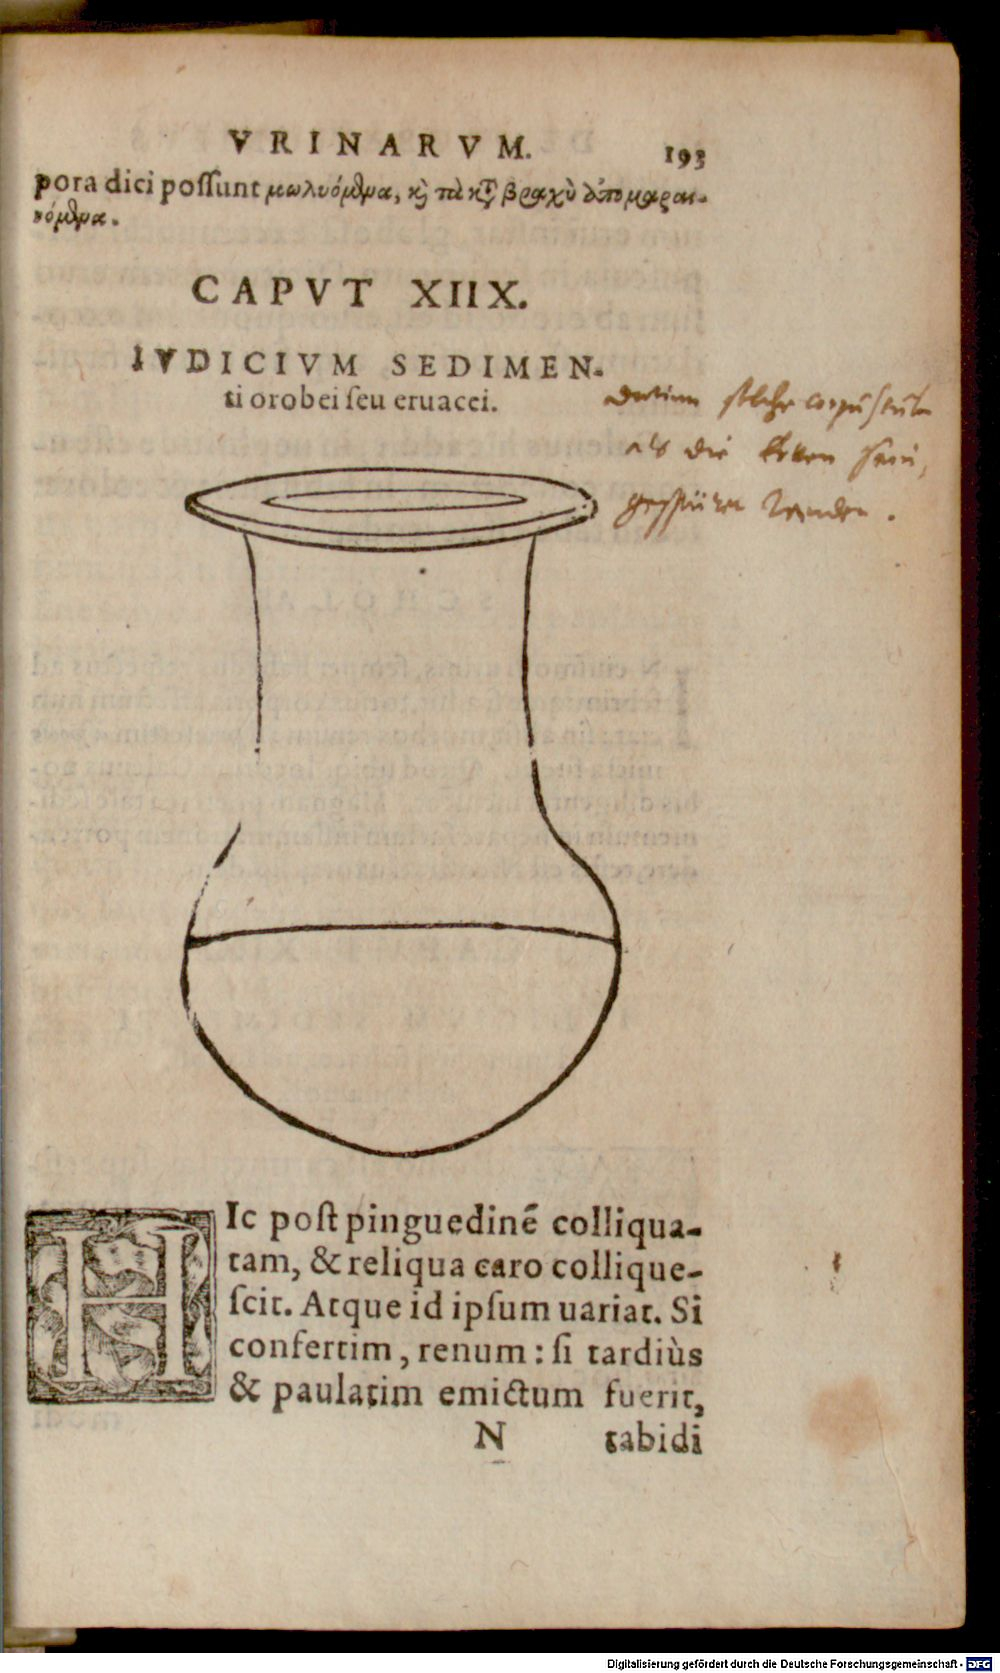 VRINARVM. 193
pora dici possunt μωλυόμενα, καὶ τὰ κατὰ βραχὺ ἀπομαραι-
νόμενα.
CAPVT XIIX.
IVDICIVM SEDIMEN-
ti orobei seu eruacei.
als die
HIc post pinguedinẽ colliqua-
tam, & reliqua caro collique-
scit. Atque id ipsum uariat. Si
confertim, renum: si tardiùs
& paulatim emictum fuerit,
N tabidi
Digitalisierung gefördert durch die Deutsche Forschungsgemeinschaft - DFG